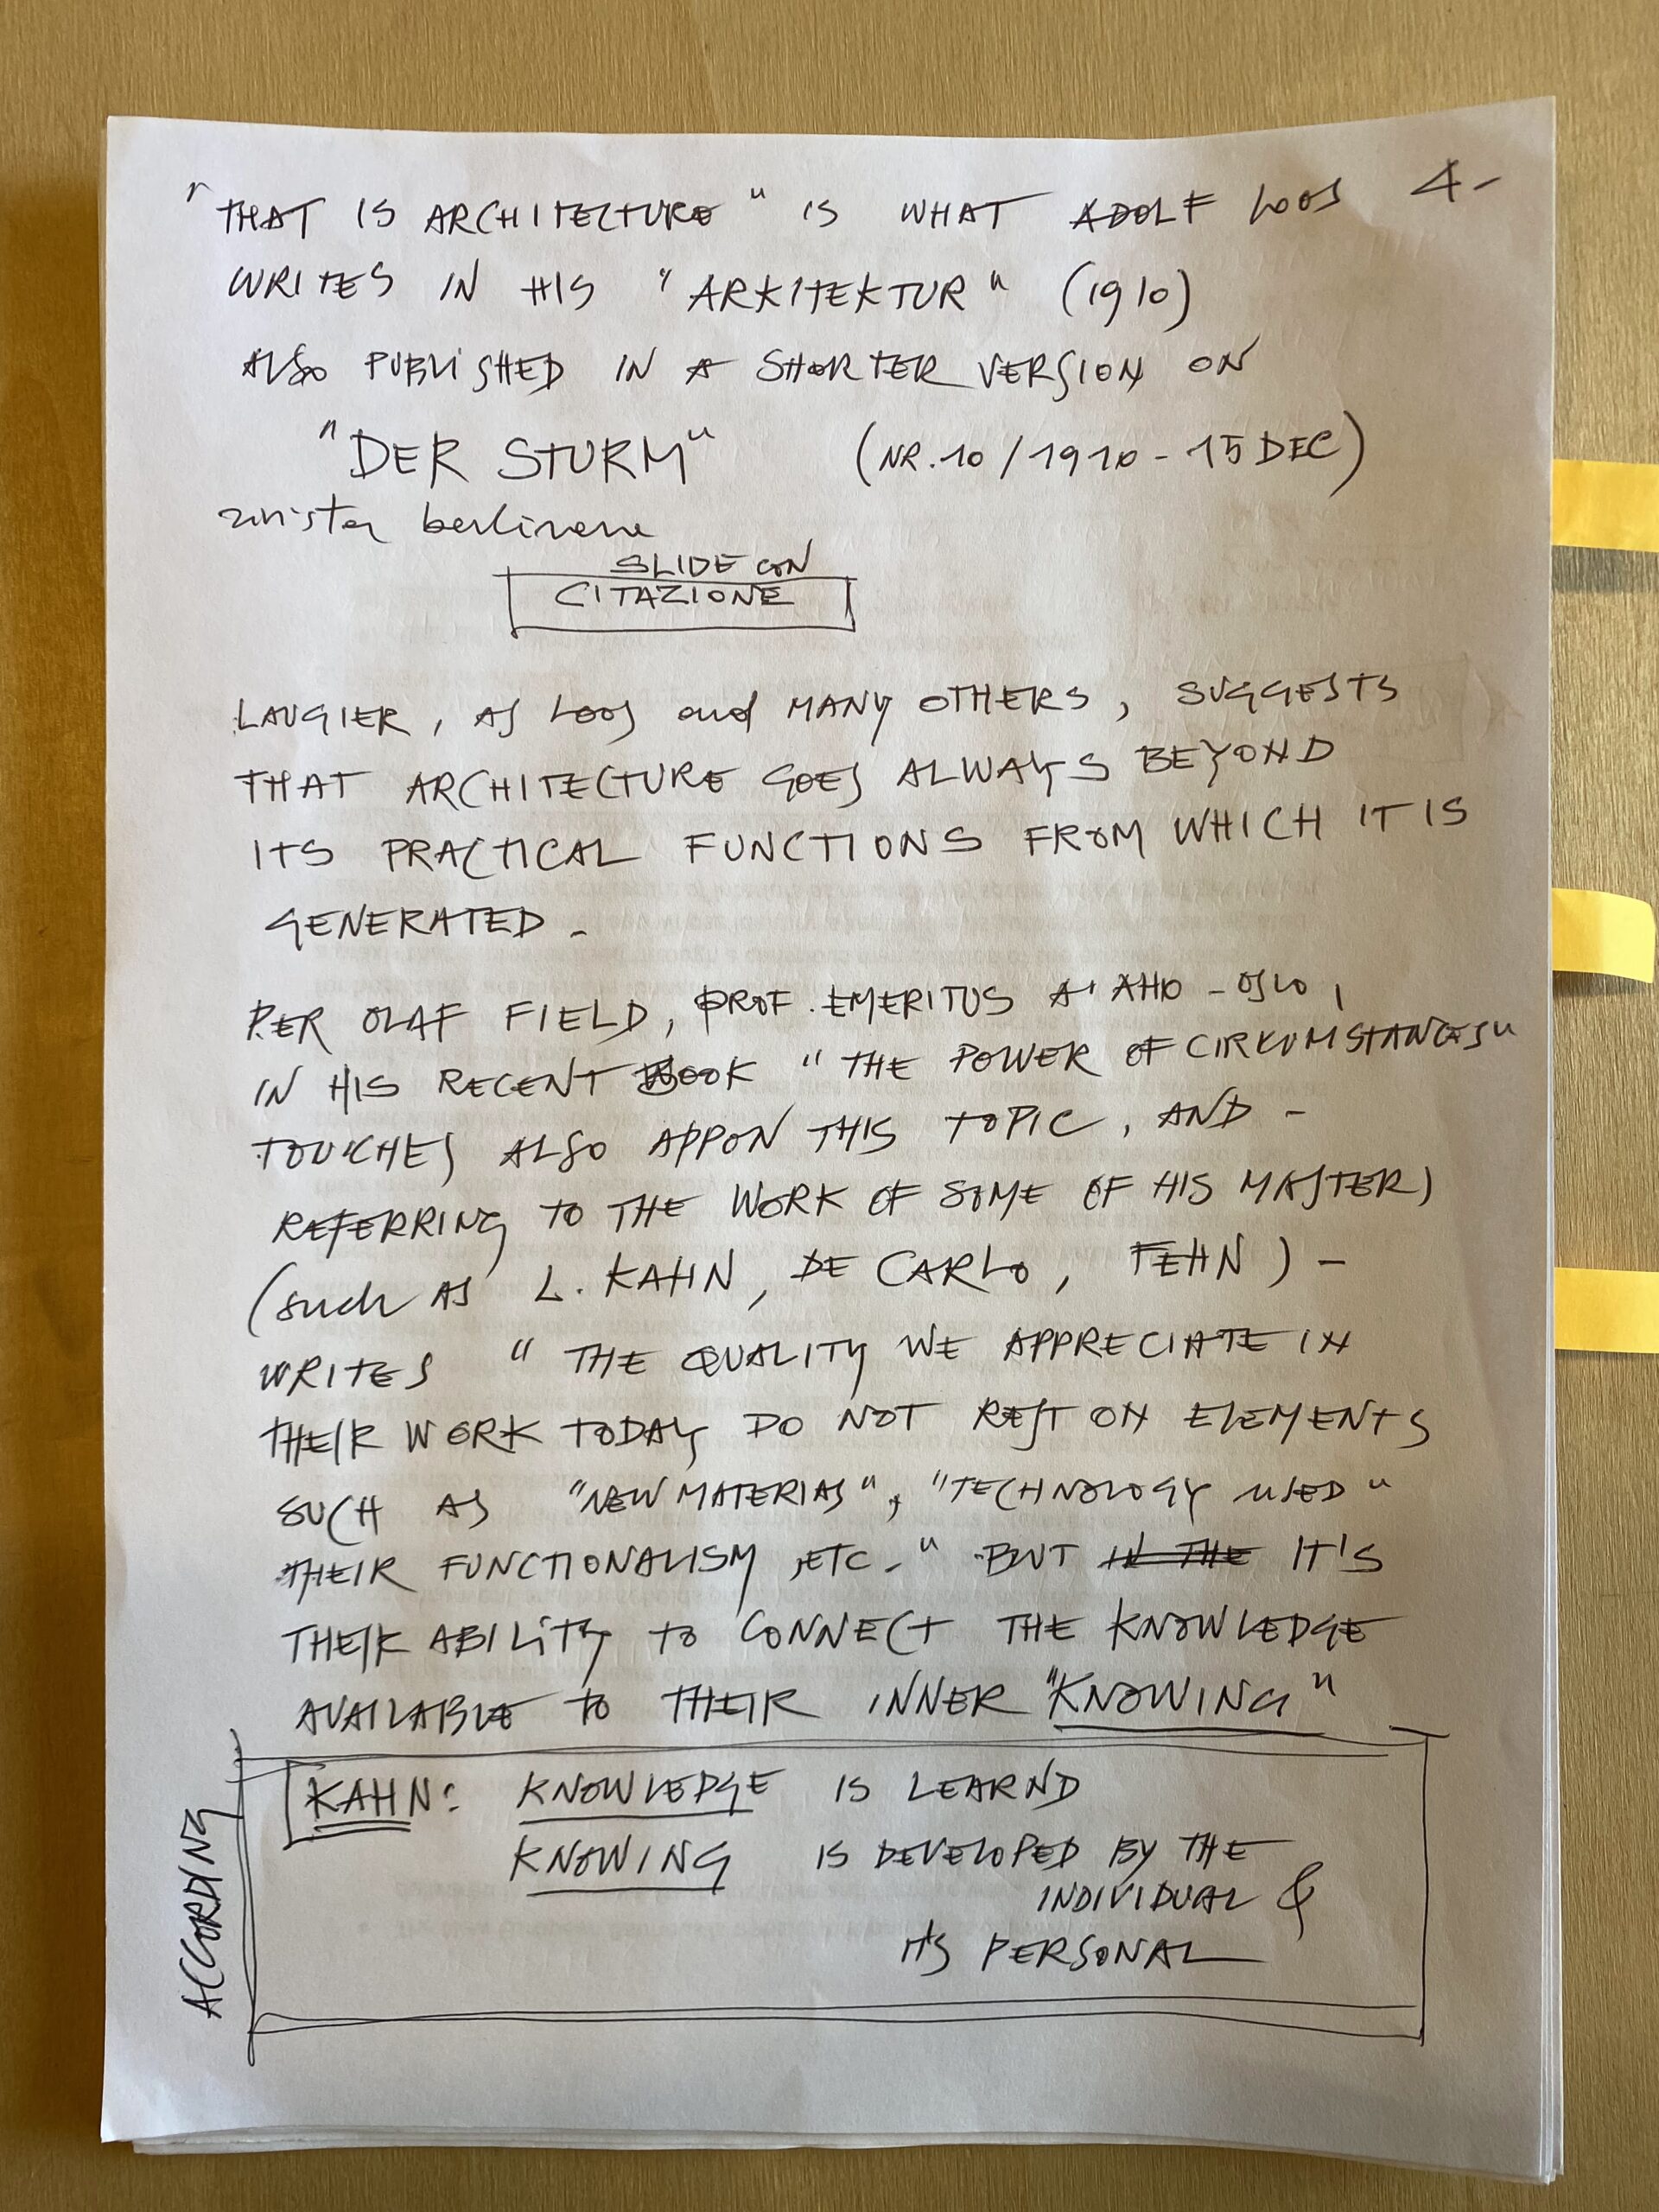 4-
"THAT IS ARCHITECTURE" IS WHAT ADOLF LOOS
WRITES IN HIS "ARKITEKTUR" (1910)
ALSO PUBLISHED IN A SHORTER VERSION ON
"DER STURM" (NR.10/1910-15DEC)
rivista berlinese
SLIDE CON
CITAZIONE
LAUGIER, AS LOOS and MANY OTHERS, SUGGESTS
THAT ARCHITECTURE GOES ALWAYS BEYOND
ITS PRACTICAL FUNCTIONS FROM WHICH IT IS
GENERATED -
PER OLAF FIELD, PROF. EMERITUS A' AHO - OSLO,
IN HIS RECENT BOOK "THE POWER OF CIRKUMSTANCES"
TOUCHES ALSO APPON THIS TOPIC, AND -
REFERRING TO THE WORK OF SOME OF HIS MASTERS
(such AS L. KAHN, DE CARLO, FEHN) -
WRITES "THE QUALITY WE APPRECIATE IN
THEIR WORK TODAY DO NOT REST ON ELEMENTS
SUCH AS "NEW MATERIAS", "TECHNOLOGY USED"
THEIR FUNCTIONALISM, ETC-" BUT IN THE IT'S
THEIR ABILITY TO CONNECT THE KNOWLEDGE
AVAILABLE TO THEIR INNER "KNOWING"
ACCORDING
KAHN: KNOWLEDGE IS LEARND
KNOWING IS DEVELOPED BY THE
INDIVIDUAL &
IT'S PERSONAL